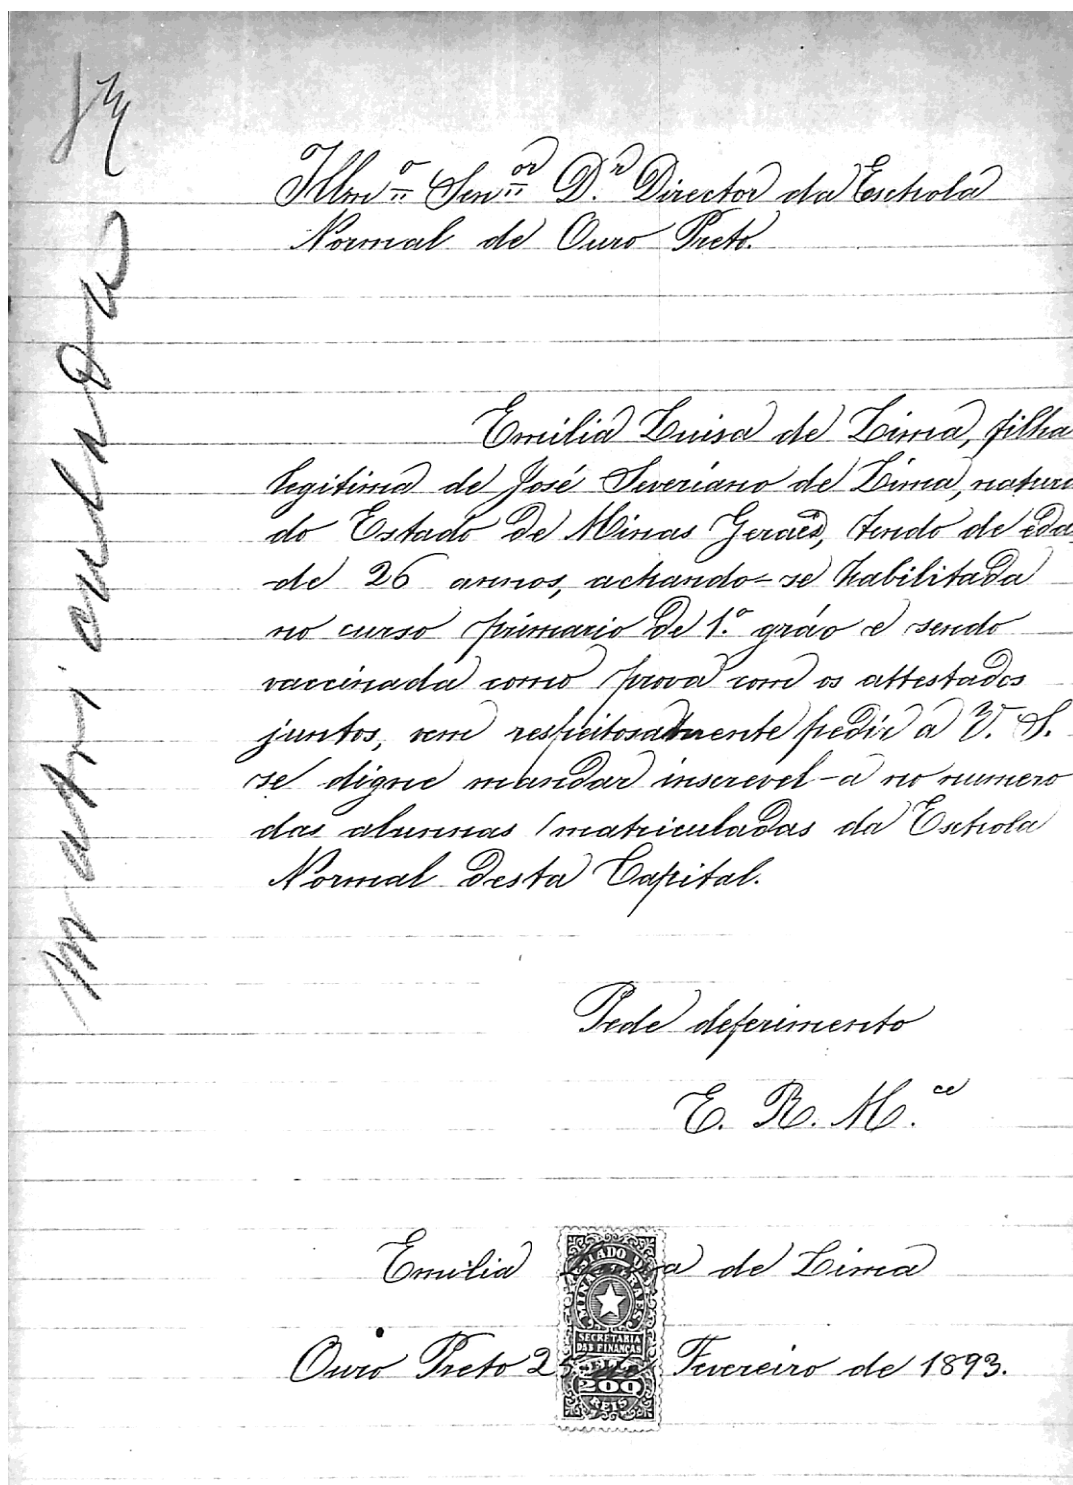 Illm.º Sen.or D.r Director da Eschola
Normal de Ouro Preto.
Emilia Luisa de Lima, filha
legitima de José Severiano de Lima, natural
do Estado de Minas Geraes, tendo de eda
de 26 annos, achando-se habilitada
no curso primario de 1.º gráo e sendo
vaccinada como prova com os attestados
juntos, vem respeitosamente pedir a V. S.
se digne mandar inscrevel-a no numero
das alumnas matriculadas da Eschola
Normal desta Capital.
Pede deferimento
E. R. M.ce
Emilia Luisa de Lima
Ouro Preto 25 de Fevereiro de 1893.
ESTADO DE
MINAS GERAES
SECRETARIA
DAS FINANÇAS
SELLO
200
REIS
Matriculada